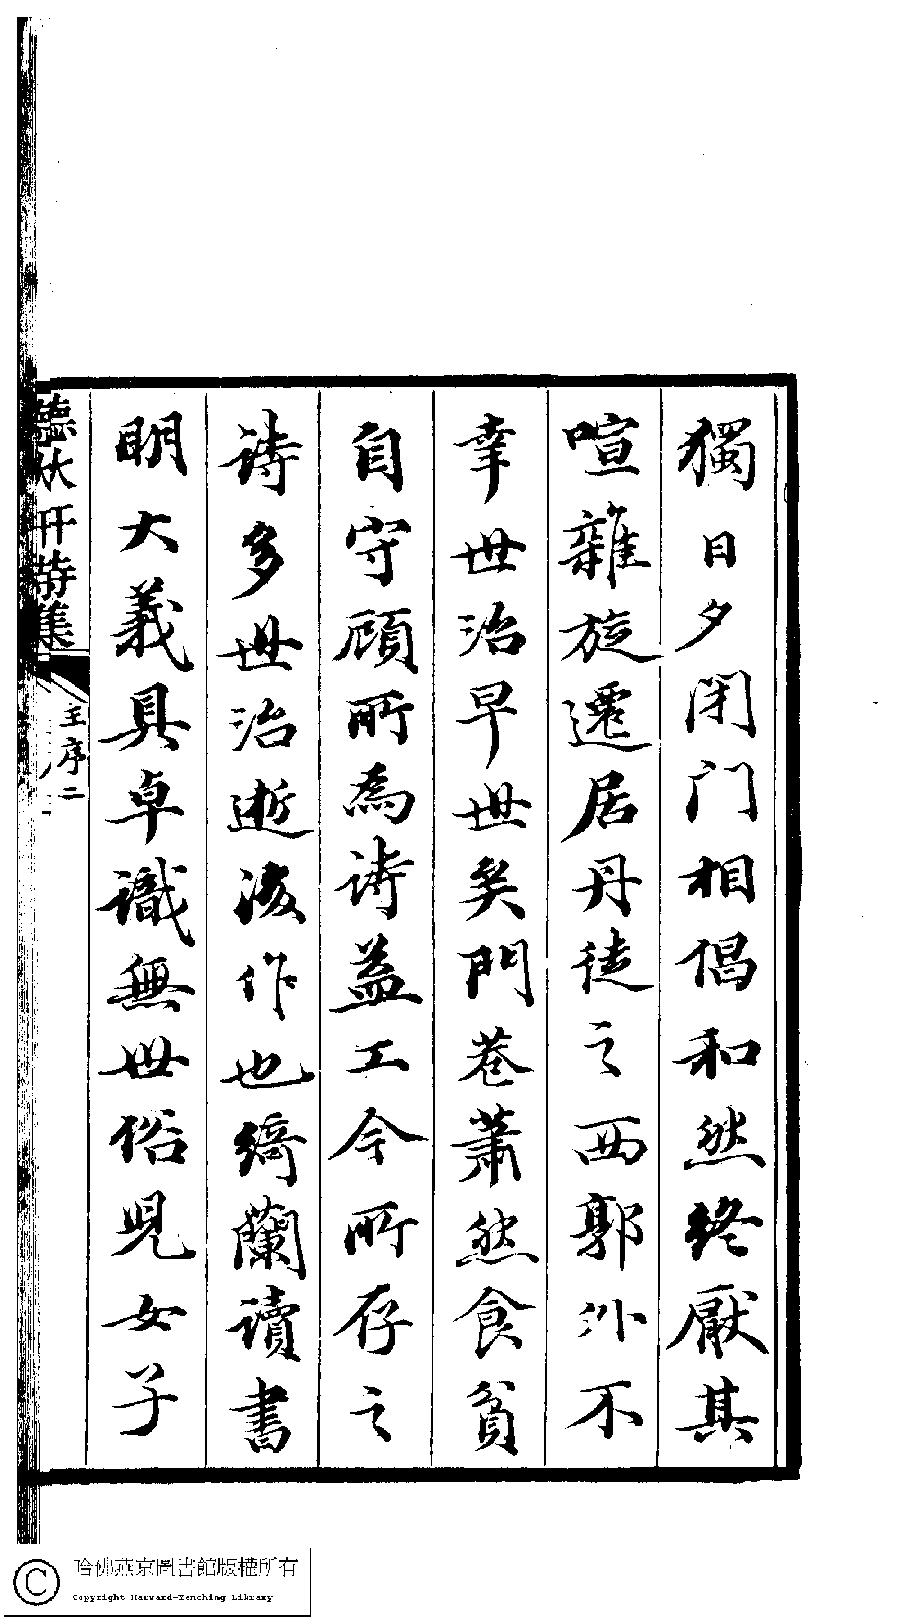 獨日夕閉门相倡和然終厭其
喧雜旋遷居丹徒之西郭外不
幸世治早世矣門巷蕭然食貧
自守顧所為詩益工今所存之
詩多世治逝後作也綺蘭讀書
明大義具卓識無世俗児女子
聽秋軒詩集
王序二
哈佛燕京圖書館版權所有
Copyright Harvard-Yenching Library